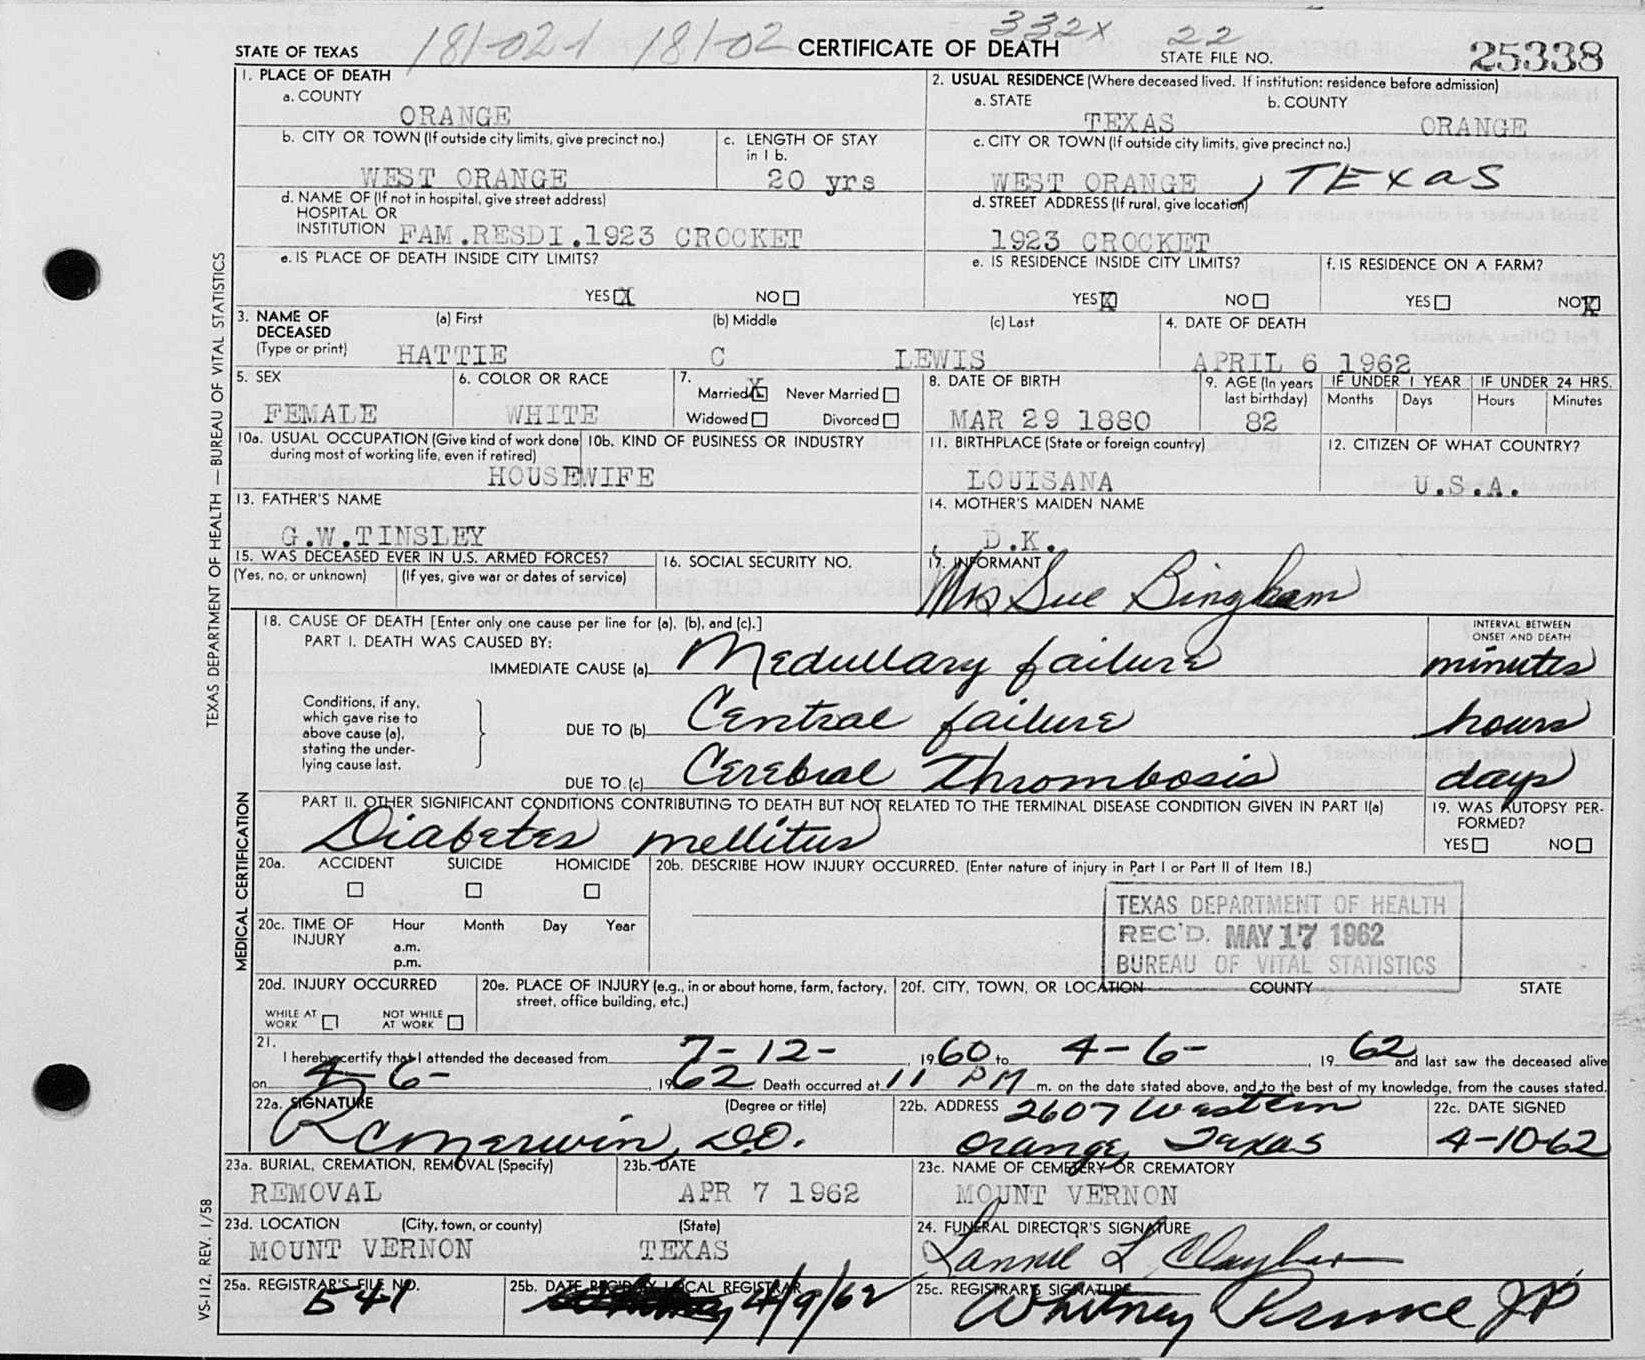 181-02-1 181-02 332x 22
STATE OF TEXAS CERTIFICATE OF DEATH STATE FILE NO. 25338
1. PLACE OF DEATH
a. COUNTY
ORANGE
2. USUAL RESIDENCE (Where deceased lived. If institution: residence before admission)
a. STATE b. COUNTY
TEXAS ORANGE
b. CITY OR TOWN (If outside city limits, give precinct no.)
WEST ORANGE
c. LENGTH OF STAY
in 1 b.
20 yrs
c. CITY OR TOWN (If outside city limits, give precinct no.)
WEST ORANGE , TEXAS
d. NAME OF (If not in hospital, give street address)
HOSPITAL OR
INSTITUTION FAM.RESDI.1923 CROCKET
d. STREET ADDRESS (If rural, give location)
1923 CROCKET
e. IS PLACE OF DEATH INSIDE CITY LIMITS?
YES X NO
e. IS RESIDENCE INSIDE CITY LIMITS?
YES X NO
f. IS RESIDENCE ON A FARM?
YES NO X
3. NAME OF
DECEASED
(Type or print)
(a) First (b) Middle (c) Last
HATTIE C LEWIS
4. DATE OF DEATH
APRIL 6 1962
5. SEX
FEMALE
6. COLOR OR RACE
WHITE
7.
Married X Never Married
Widowed Divorced
8. DATE OF BIRTH
MAR 29 1880
9. AGE (In years
last birthday)
82
IF UNDER 1 YEAR
Months Days
IF UNDER 24 HRS.
Hours Minutes
10a. USUAL OCCUPATION (Give kind of work done
during most of working life, even if retired)
10b. KIND OF BUSINESS OR INDUSTRY
HOUSEWIFE
11. BIRTHPLACE (State or foreign country)
LOUISANA
12. CITIZEN OF WHAT COUNTRY?
U.S.A.
13. FATHER'S NAME
G.W.TINSLEY
14. MOTHER'S MAIDEN NAME
D.K.
15. WAS DECEASED EVER IN U.S. ARMED FORCES?
(Yes, no, or unknown) (If yes, give war or dates of service)
16. SOCIAL SECURITY NO.
17. INFORMANT
Mrs Sue Bingham
18. CAUSE OF DEATH [Enter only one cause per line for (a), (b), and (c).]
PART I. DEATH WAS CAUSED BY:
INTERVAL BETWEEN
ONSET AND DEATH
IMMEDIATE CAUSE (a) Medullary failure minutes
Conditions, if any,
which gave rise to
above cause (a),
stating the under-
lying cause last.
DUE TO (b) Central failure hours
DUE TO (c) Cerebral Thrombosis days
PART II. OTHER SIGNIFICANT CONDITIONS CONTRIBUTING TO DEATH BUT NOT RELATED TO THE TERMINAL DISEASE CONDITION GIVEN IN PART I(a)
Diabetes mellitus
19. WAS AUTOPSY PER-
FORMED?
YES NO
20a. ACCIDENT SUICIDE HOMICIDE
20b. DESCRIBE HOW INJURY OCCURRED. (Enter nature of injury in Part I or Part II of Item 18.)
TEXAS DEPARTMENT OF HEALTH
REC'D. MAY 17 1962
BUREAU OF VITAL STATISTICS
20c. TIME OF
INJURY
Hour Month Day Year
a.m.
p.m.
20d. INJURY OCCURRED
WHILE AT
WORK
NOT WHILE
AT WORK
20e. PLACE OF INJURY (e.g., in or about home, farm, factory,
street, office building, etc.)
20f. CITY, TOWN, OR LOCATION COUNTY STATE
21.
I hereby certify that I attended the deceased from 7-12- , 1960 to 4-6- , 1962 and last saw the deceased alive
on 4-6- , 1962 Death occurred at 11 PM m. on the date stated above, and to the best of my knowledge, from the causes stated.
22a. SIGNATURE (Degree or title)
R C Merwin, D.O.
22b. ADDRESS 2607 Western
Orange, Texas
22c. DATE SIGNED
4-10-62
23a. BURIAL, CREMATION, REMOVAL (Specify)
REMOVAL
23b. DATE
APR 7 1962
23c. NAME OF CEMETERY OR CREMATORY
MOUNT VERNON
23d. LOCATION (City, town, or county) (State)
MOUNT VERNON TEXAS
24. FUNERAL DIRECTOR'S SIGNATURE
25a. REGISTRAR'S FILE NO.
541
25b. DATE REC'D BY LOCAL REGISTRAR
4/9/62
25c. REGISTRAR'S SIGNATURE
Whitney JP
TEXAS DEPARTMENT OF HEALTH — BUREAU OF VITAL STATISTICS
MEDICAL CERTIFICATION
VS-112, REV. 1/58